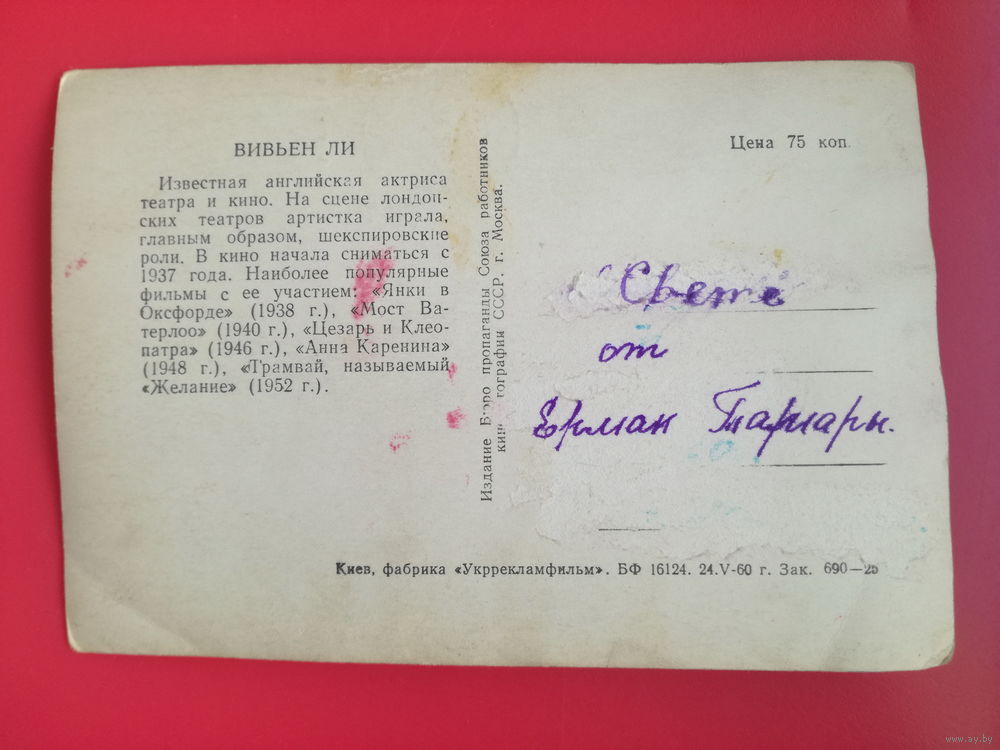 ВИВЬЕН ЛИ
Известная английская актриса
театра и кино. На сцене лондон-
ских театров артистка играла,
главным образом, шекспировские
роли. В кино начала сниматься с
1937 года. Наиболее популярные
фильмы с ее участием: «Янки в
Оксфорде» (1938 г.), «Мост Ва-
терлоо» (1940 г.), «Цезарь и Клео-
патра» (1946 г.), «Анна Каренина»
(1948 г.), «Трамвай, называемый
«Желание» (1952 г.).
Издание Бюро пропаганды Союза работников
кин ографии СССР. г. Москва.
Цена 75 коп.
Свете
от
Ерман Тамары.
Киев, фабрика «Укррекламфильм». БФ 16124. 24.V-60 г. Зак. 690—25
www.ay.by